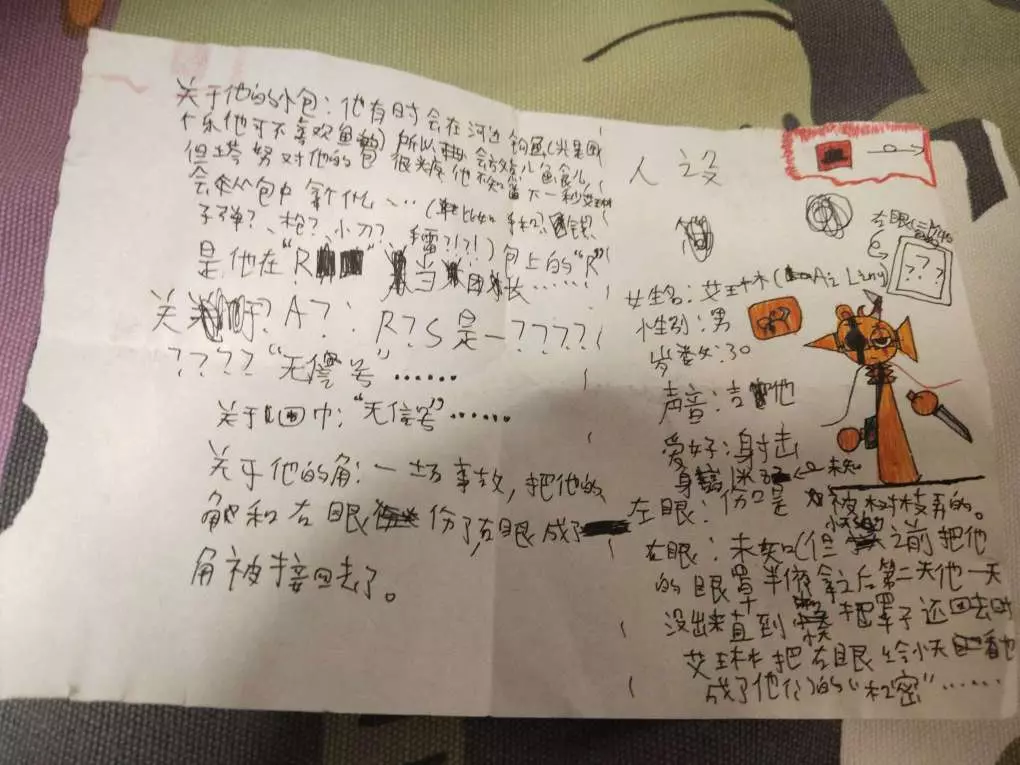 关于他的小包：他有时会在河边钓鱼(
个乐他可不喜欢鱼 )所以 会 儿鱼食儿，
但塔努对他的包很 他不知 下一秒艾琳
会从包中拿什么……(比如 手机、
子弹？、枪？、小刀？ ?!?!)包上的“R”
是他在“R ” 当 团长……
关 ? A?: R?S是一????
????“无信号”……
关于 巾：“无信号”……
关于他的角：一场事故，把他的
角和右眼 份了，右眼成了
角被接回去了。
人设
右眼
???
姓名：艾琳 (Ai Liny)
性别：男
岁数：30
声音：吉他
爱好：射击
身高 米 ← 未知
左眼：份口是 被树枝弄的。
右眼：未知(但 小天 之前把他
的眼罩半夜拿之后第二天他一天
没出来直到 把罩子还回去时
艾琳把右眼给小天看也
成了他们的“秘密”……